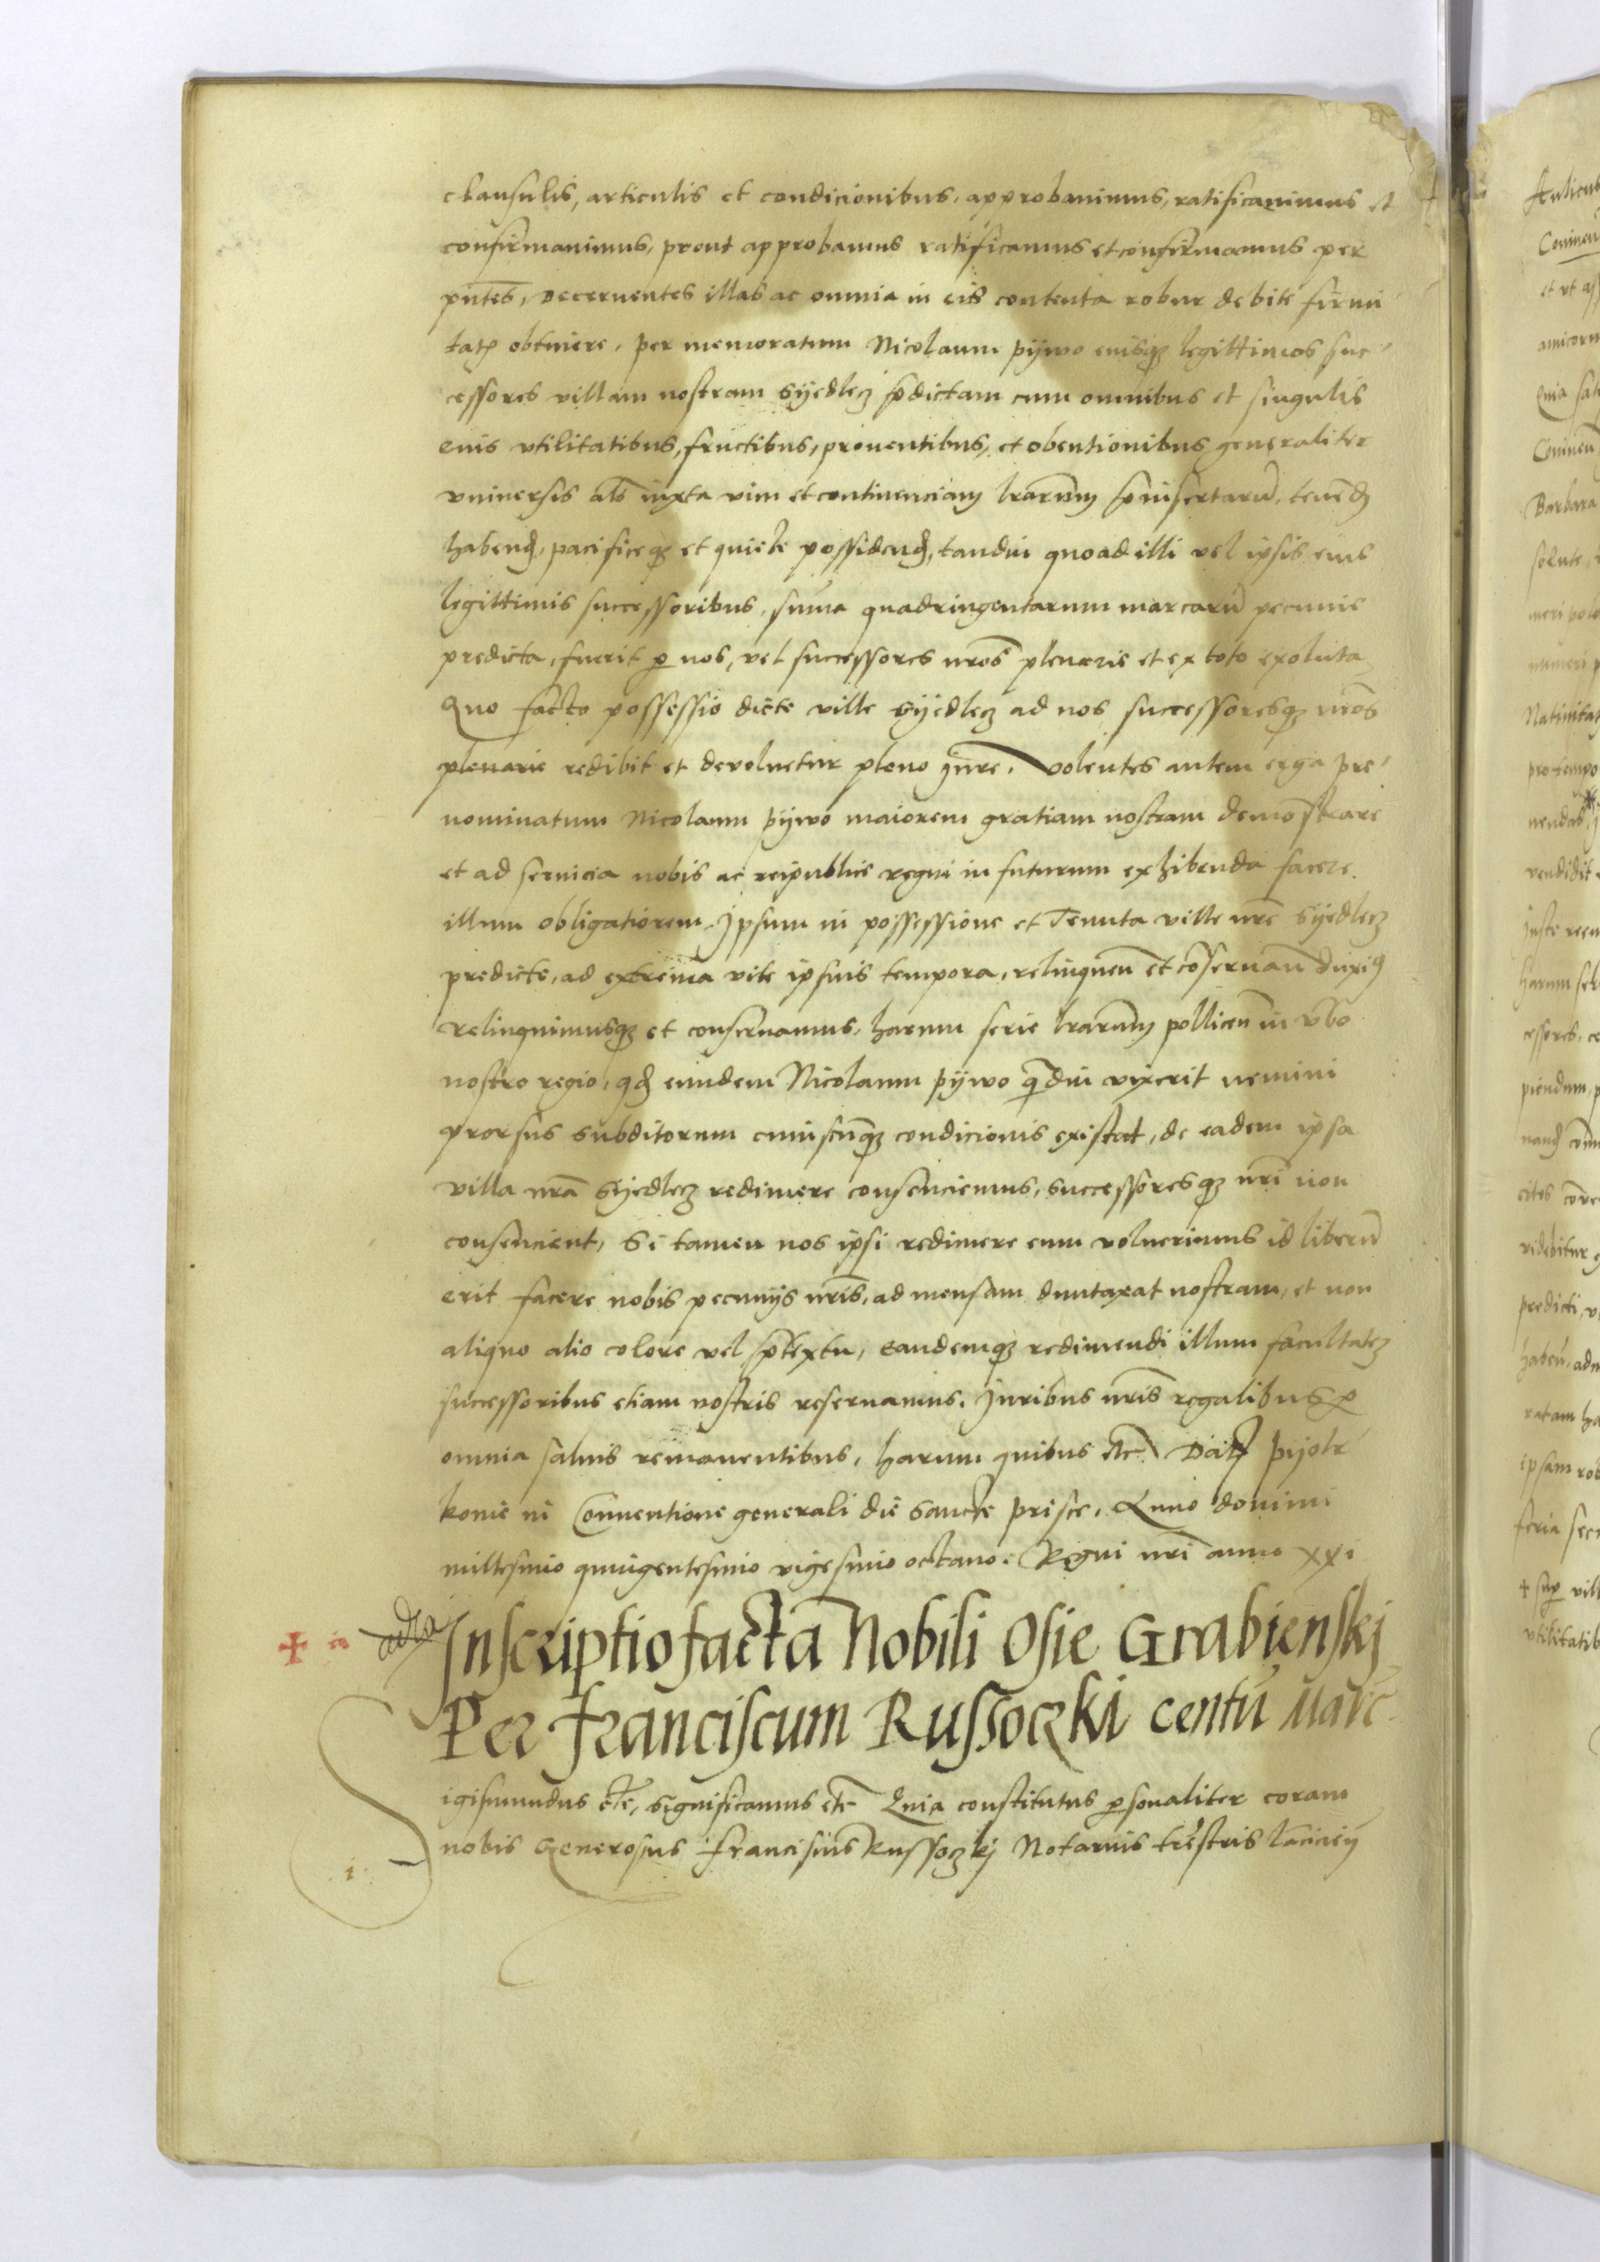 clausulis, articulis et condicionibus, approbavimus, ratificavimus et
confirmavimus, prout approbamus ratificamus et confirmamus per
pñtes, decernentes illas ac omnia in eis contenta robur debite firmi
tatꝭ obtinere, per memoratum Nicolaum pijwo eiusqꝫ legittimos suc
cessores villam nostram Sijedlecz p̃dictam cum omnibus et singulis
eius vtilitatibus, fructibus, proventibus, et obventionibus generaliter
vniversis als iuxta vim et continenciam lrarum p̃insertarũ, tenend
habend, pacificeqꝫ et quiete possidend, tamdiu quoad illi vel ipsis eius
legittimis successoribus, sum̃a quadringentarum marcarũ pecunie
predicta, fuerit ꝑ nos, vel successores nr̃os plenarie et ex toto exoluta
Quo facto possessio dicte ville Sijedlecz ad nos successoresqꝫ nr̃os
plenarie redibit et devolvetur pleno Iure. Volentes autem erga pre
nominatum Nicolaum pijwo maiorem gratiam nostram demõstrare
et ad servicia nobis ac reipublice regni in futurum exhibenda facere
illum obligatiorem, Ipsum in possessione et Tenuta ville nr̃e Sijedlecz
predicte, ad extrema vite ipsius tempora, relinquen et cõservan duximꝰ
relinquimusqꝫ et conservamus, harum serie lrarum pollicen in ṽbo
nostro regio, qd eundem Nicolaum pijwo q̃diu vixerit nemini
prorsus subditorum cuiuscũqꝫ condicionis existat, de eadem ipsa
villa nr̃a Sijedlecz redimere consenciemus, successoresqꝫ nr̃i non
consencient, Si tamen nos ipsi redimere eum voluerimus id liberũ
erit facere nobis pecunijs nr̃is, ad mensam duntaxat nostram, et non
aliquo alio colore vel p̃textu, eandemqꝫ redimendi illum facultatẽ
successoribus etiam nostris reservamus. Iuribus nr̃is regalibus ꝑ
omnia salvis remanentibus, harum quibus etc̃. Datꝭ pijotr
kovie in Conventione generali die Sancte prisce, Anno domini
millesimo quingentesimo vigesimo octavo. Regni nr̃i anno xxi
Inscriptio facta Nobili Osie Grabienskj
Per Franciscum Russoczki centũ marc
igismundus etc̃, significamus etc̃ Quia constitutus ꝑsonaliter coram
nobis Generosus Franciscus Russoczkj Notarius tr̃estris Lancicien